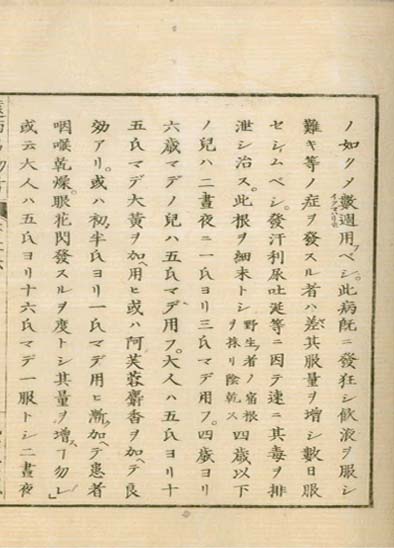 ノ如クメ數週用フベシ。此病既ニ發狂シ飮液ヲ服シ
難キ等ノ症ヲ發スル者ハ差其服量ヲ增シ數日服
セシムベシ。發汗利尿吐涎等ニ因テ速ニ其毒ヲ排
泄シ治ス。此根ヲ細末トシ野生ノ者ノ宿根ヲ採リ陰乾ス四歲以下
ノ兒ハ二晝夜ニ一氏ヨリ三氏マデ用フ。四歲ヨリ
六歲マデノ兒ハ五氏マデ用フ。大人ハ五氏ヨリ十
五氏マデ大黃ヲ加ヘ用ヒ或ハ阿芙蓉麝香ヲ加ヘテ良
効アリ。或ハ初メ半氏ヨリ一氏マデ用ヒ漸ク加ヘテ患者
咽喉乾燥。眼花閃發スルヲ度トシ其量ヲ增スヿ勿レ」
或云大人ハ五氏ヨリ十六氏マデ一服トシ二晝夜